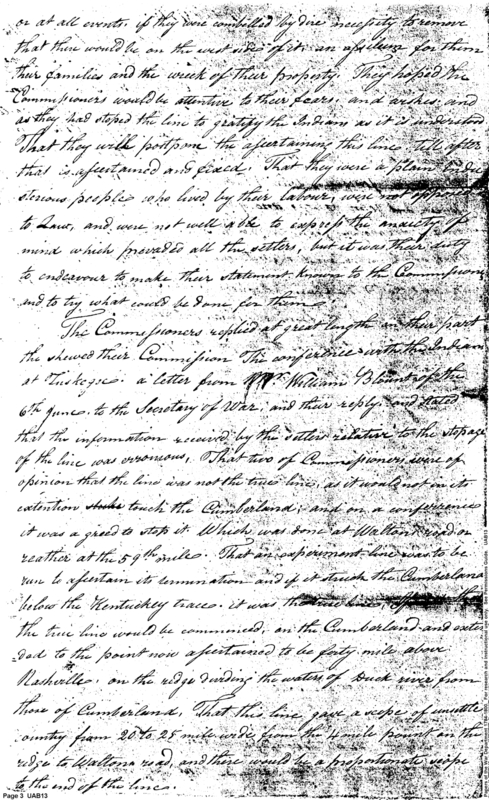 or at all events, if they were combelled by dire necessity to remove
that there would be on the west side of it an assilum for them
their families and the week of their property. They hoped the
Commissioners would be attentive to their fears, and wishes, and
as they had stoped the line to gratify the Indians as it is understood
That they will postpone the assertaining this line till after
that is assertained and fixed. That they were a plain
sterious people who lived by their labour, were not
to Law, and were not well able to express the anxiety of
mind which prevaded all the settlers, but it was their duty
to endeavour to make their statement known to the Commissioners
and to try what could be done for them.
The Commissioners replied at great length on their part
the shewed their Commission The conference with the Indians
at Tuskegee. a letter from William Blount of the
6th June. to the Secretary of War, and their reply and stated
that the information received by the settlers relative to the stopage
of the line was erroneous, That two of Commissioners were of
opinion that the line was not the true line, as it would not in its
extention touch the Cumberland; and on a conferrence
it was agreed to stop it Which was done at Waltons road or
reather at the 59th mile. That an experement line was to be
run to assertain its termination and if it struck the Cumberland
below the Kentuckey trace. it was the true line,
the true line would be commenced, on the Cumberland and exten
ded to the point now assertained to be forty mile above
Nashville, on the ridge deviding the waters of Duck river from
those of Cumberland, That this line gave a scope of unsettle
country from 20 to 25 mile wide from the 4 mile point on the
ridge to Waltons road, and there would be a proportionate scope
to the end of the line.
Page 3 UAB13